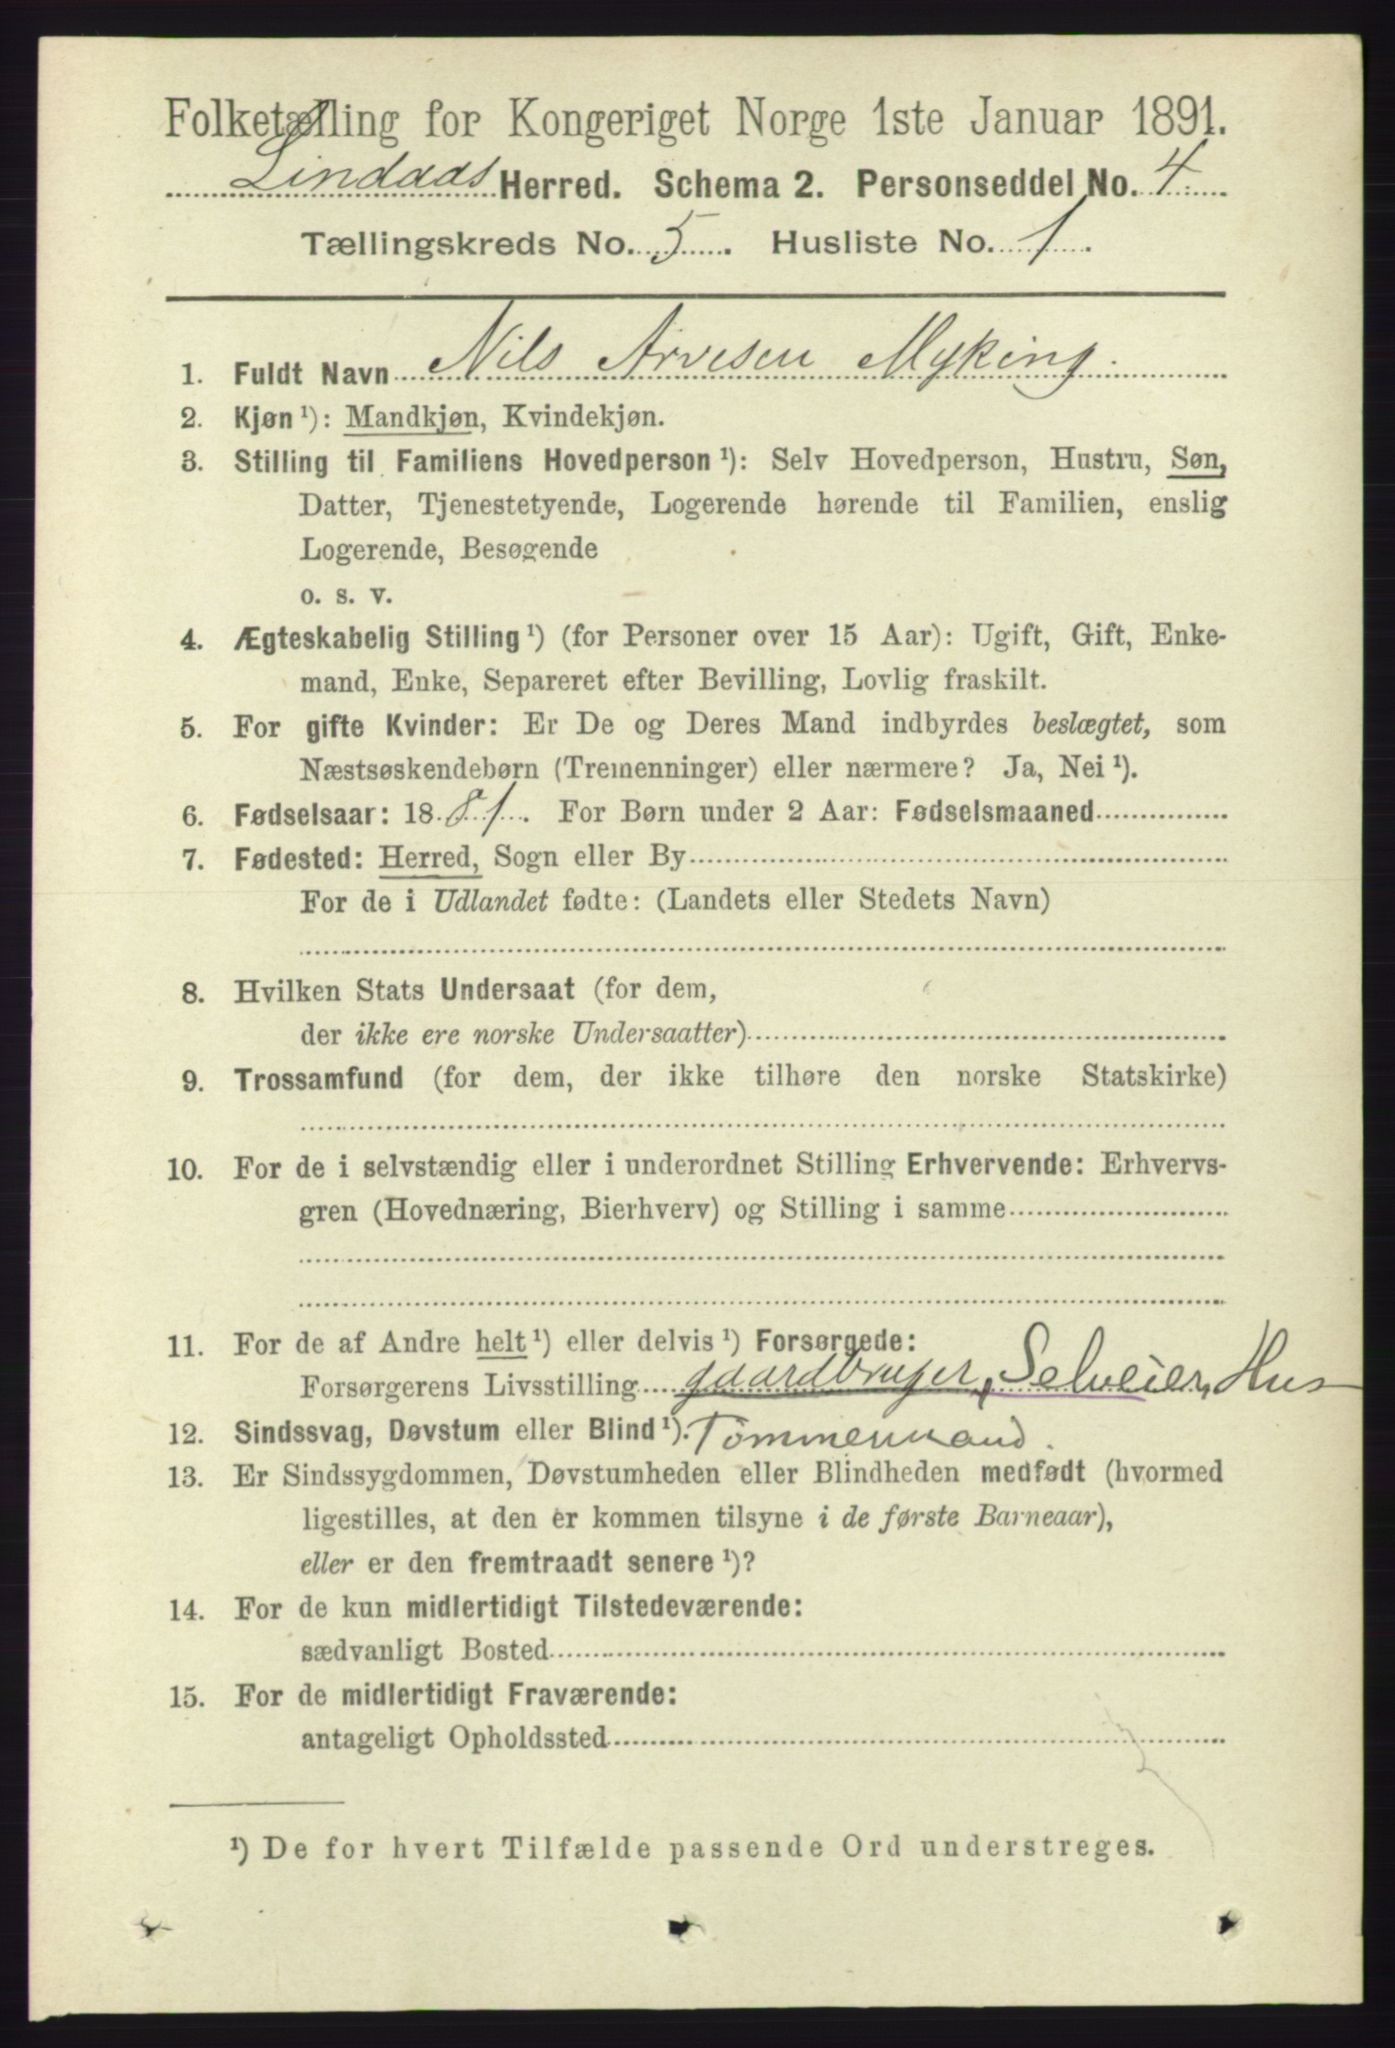 Folketælling for Kongeriget Norge 1ste Januar 1891.
Lindaas Herred. Schema 2. Personseddel No. 4
Tællingskreds No. 5. Husliste No. 1.
1. Fuldt Navn Nils Arvesen Myking.
2. Kjøn ¹): Mandkjøn, Kvindekjøn.
3. Stilling til Familiens Hovedperson ¹): Selv Hovedperson, Hustru, Søn,
Datter, Tjenestetyende, Logerende hørende til Familien, enslig
Logerende, Besøgende
o. s. v.
4. Ægteskabelig Stilling ¹) (for Personer over 15 Aar): Ugift, Gift, Enke-
mand, Enke, Separeret efter Bevilling, Lovlig fraskilt.
5. For gifte Kvinder: Er De og Deres Mand indbyrdes beslægtet, som
Næstsøskendebørn (Tremenninger) eller nærmere? Ja, Nei ¹).
6. Fødselsaar: 1881. For Børn under 2 Aar: Fødselsmaaned
7. Fødested: Herred, Sogn eller By
For de i Udlandet fødte: (Landets eller Stedets Navn)
8. Hvilken Stats Undersaat (for dem,
der ikke ere norske Undersaatter)
9. Trossamfund (for dem, der ikke tilhøre den norske Statskirke)
10. For de i selvstændig eller i underordnet Stilling Erhvervende: Erhvervs-
gren (Hovednæring, Bierhverv) og Stilling i samme
11. For de af Andre helt ¹) eller delvis ¹) Forsørgede:
Forsørgerens Livsstilling gaardbruger, Selveier, Hus
12. Sindssvag, Døvstum eller Blind ¹). Tømmermand.
13. Er Sindssygdommen, Døvstumheden eller Blindheden medfødt (hvormed
ligestilles, at den er kommen tilsyne i de første Barneaar),
eller er den fremtraadt senere ¹)?
14. For de kun midlertidigt Tilstedeværende:
sædvanligt Bosted
15. For de midlertidigt Fraværende:
antageligt Opholdssted
¹) De for hvert Tilfælde passende Ord understreges.